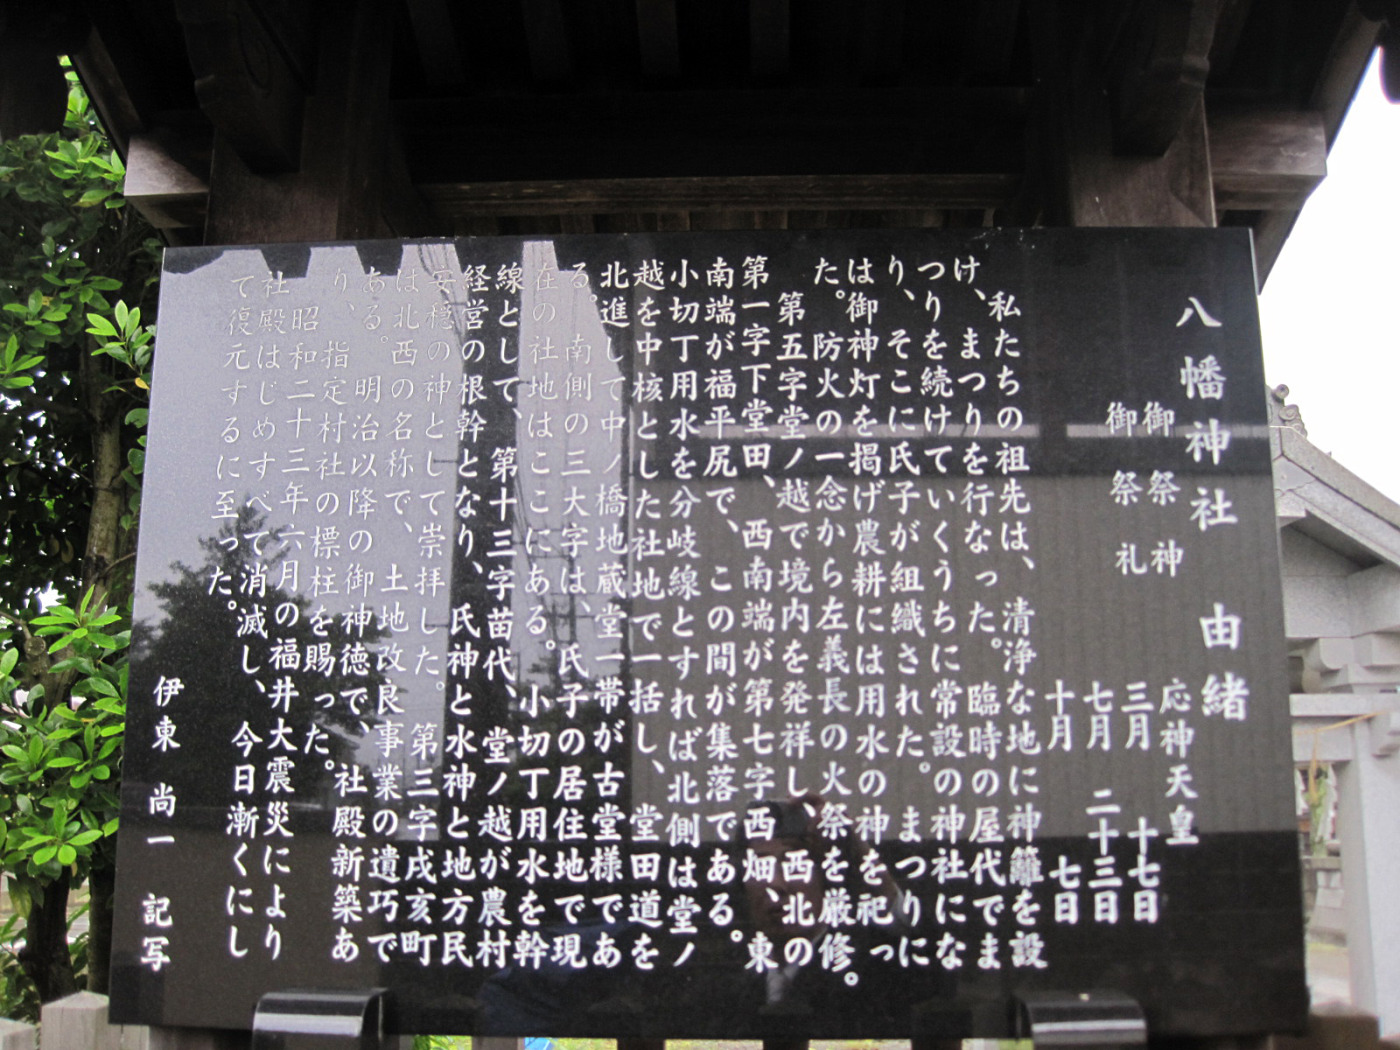 八幡神社 由緒
御祭神 応神天皇
御祭礼 三月 十七日
七月 二十三日
十月 七日
私たちの祖先は、清浄な地に神籬を設
け、まつりを行なった。臨時の屋代でま
つりを続けていくうちに常設の神社にな
り、そこに氏子が組織された。まつりに
は御神灯を掲げ農耕には用水の神を祀っ
た。防火の一念から左義長の火祭を厳修。
第五字堂ノ越で境内を発祥し、西北の
第一字下堂田、西南端が第七字西畑、東
南端が福平尻で、この間が集落である。
小切丁用水を分岐線とすれば北側は堂ノ
越を中核とした社地で一括し、堂田道を
北進して中ノ橋地蔵堂一帯が古堂様であ
る。南側の三大字は、氏子の居住地で現
在の社地はここにある。小切丁用水を幹
線として、第十三字苗代、堂ノ越が農村
経営の根幹となり、氏神と水神と地方民
安穏の神として崇拝した。第三字戌亥町
は北西の名称で、土地改良事業の遺巧で
ある。明治以降の御神徳で、社殿新築あ
り、指定村社の標柱を賜った。
昭和二十三年六月の福井大震災により
社殿はじめすべて消滅し、今日漸くにし
て復元するに至った。
伊東 尚一 記写